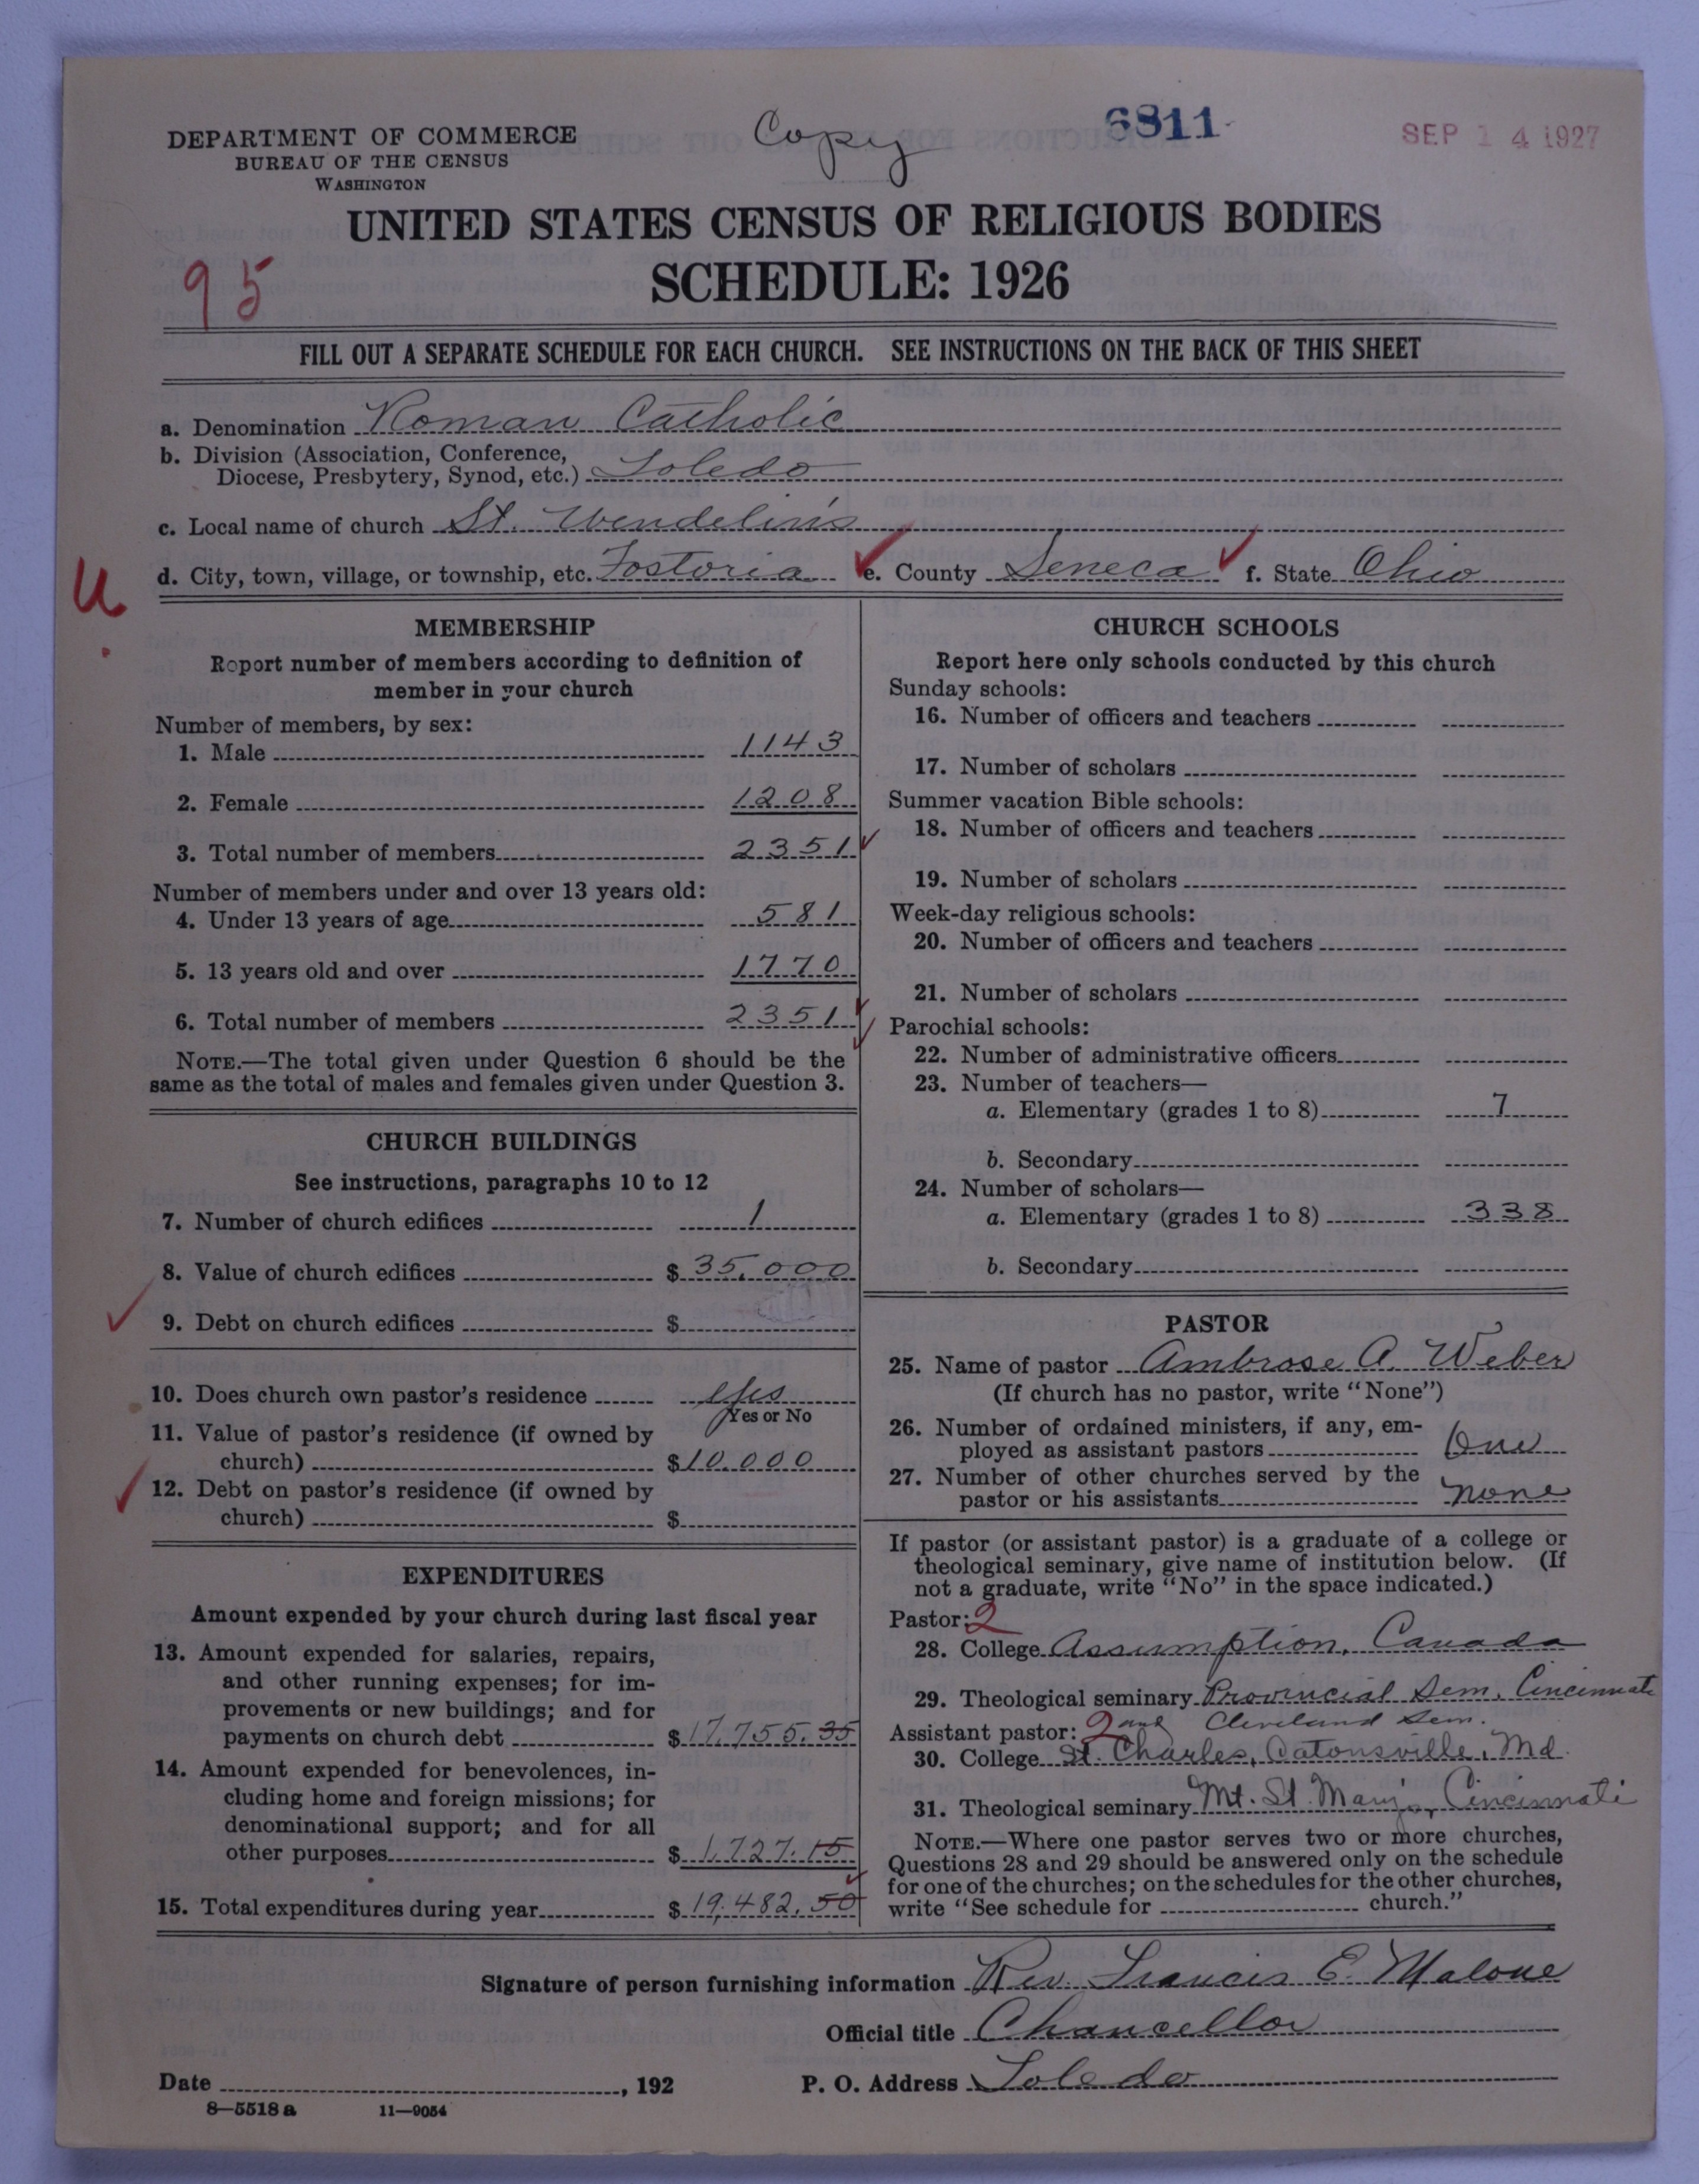 DEPARTMENT OF COMMERCE
BUREAU OF THE CENSUS
WASHINGTON
Copy
6811
SEP 14 1927
UNITED STATES CENSUS OF RELIGIOUS BODIES
SCHEDULE: 1926
95
FILL OUT A SEPARATE SCHEDULE FOR EACH CHURCH. SEE INSTRUCTIONS ON THE BACK OF THIS SHEET
a. Denomination Roman Catholic
b. Division (Association, Conference,
Diocese, Presbytery, Synod, etc.) Toledo
c. Local name of church St. Wendelin's
d. City, town, village, or township, etc. Fostoria e. County Seneca f. State Ohio
U
MEMBERSHIP
Report number of members according to definition of
member in your church
Number of members, by sex:
1. Male 1143
2. Female 1208
3. Total number of members 2351
Number of members under and over 13 years old:
4. Under 13 years of age 581
5. 13 years old and over 1770
6. Total number of members 2351
NOTE.—The total given under Question 6 should be the
same as the total of males and females given under Question 3.
CHURCH BUILDINGS
See instructions, paragraphs 10 to 12
7. Number of church edifices 1
8. Value of church edifices $ 35,000
9. Debt on church edifices $
10. Does church own pastor's residence Yes
Yes or No
11. Value of pastor's residence (if owned by
church) $ 10,000
12. Debt on pastor's residence (if owned by
church) $
EXPENDITURES
Amount expended by your church during last fiscal year
13. Amount expended for salaries, repairs,
and other running expenses; for im-
provements or new buildings; and for
payments on church debt $ 17,755.35
14. Amount expended for benevolences, in-
cluding home and foreign missions; for
denominational support; and for all
other purposes $ 1,727.15
15. Total expenditures during year $ 19,482.50
CHURCH SCHOOLS
Report here only schools conducted by this church
Sunday schools:
16. Number of officers and teachers
17. Number of scholars
Summer vacation Bible schools:
18. Number of officers and teachers
19. Number of scholars
Week-day religious schools:
20. Number of officers and teachers
21. Number of scholars
Parochial schools:
22. Number of administrative officers
23. Number of teachers—
a. Elementary (grades 1 to 8) 7
b. Secondary
24. Number of scholars—
a. Elementary (grades 1 to 8) 338
b. Secondary
PASTOR
25. Name of pastor Ambrose A. Weber
(If church has no pastor, write "None")
26. Number of ordained ministers, if any, em-
ployed as assistant pastors One
27. Number of other churches served by the
pastor or his assistants none
If pastor (or assistant pastor) is a graduate of a college or
theological seminary, give name of institution below. (If
not a graduate, write "No" in the space indicated.)
Pastor: 2
28. College Assumption, Canada
29. Theological seminary Provincial Sem. Cincinnati
Assistant pastor: 2 and Cleveland Sem.
30. College St. Charles, Catonsville, Md.
31. Theological seminary Mt. St. Mary's, Cincinnati
NOTE.—Where one pastor serves two or more churches,
Questions 28 and 29 should be answered only on the schedule
for one of the churches; on the schedules for the other churches,
write "See schedule for church."
Signature of person furnishing information Rev. Francis E. Malone
Official title Chancellor
Date , 192 P. O. Address Toledo
8—5518 a 11—9054